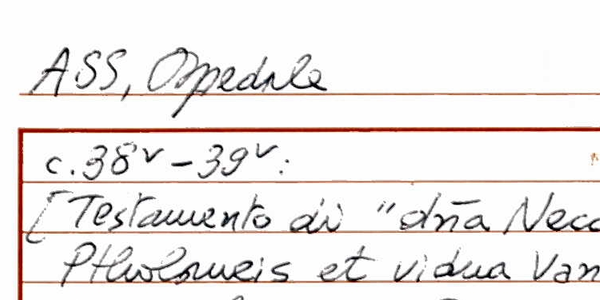 ASS, Ospedale
c. 38v - 39v:
[Testamento di "dña Necc
Ptholomeis et vidua Van